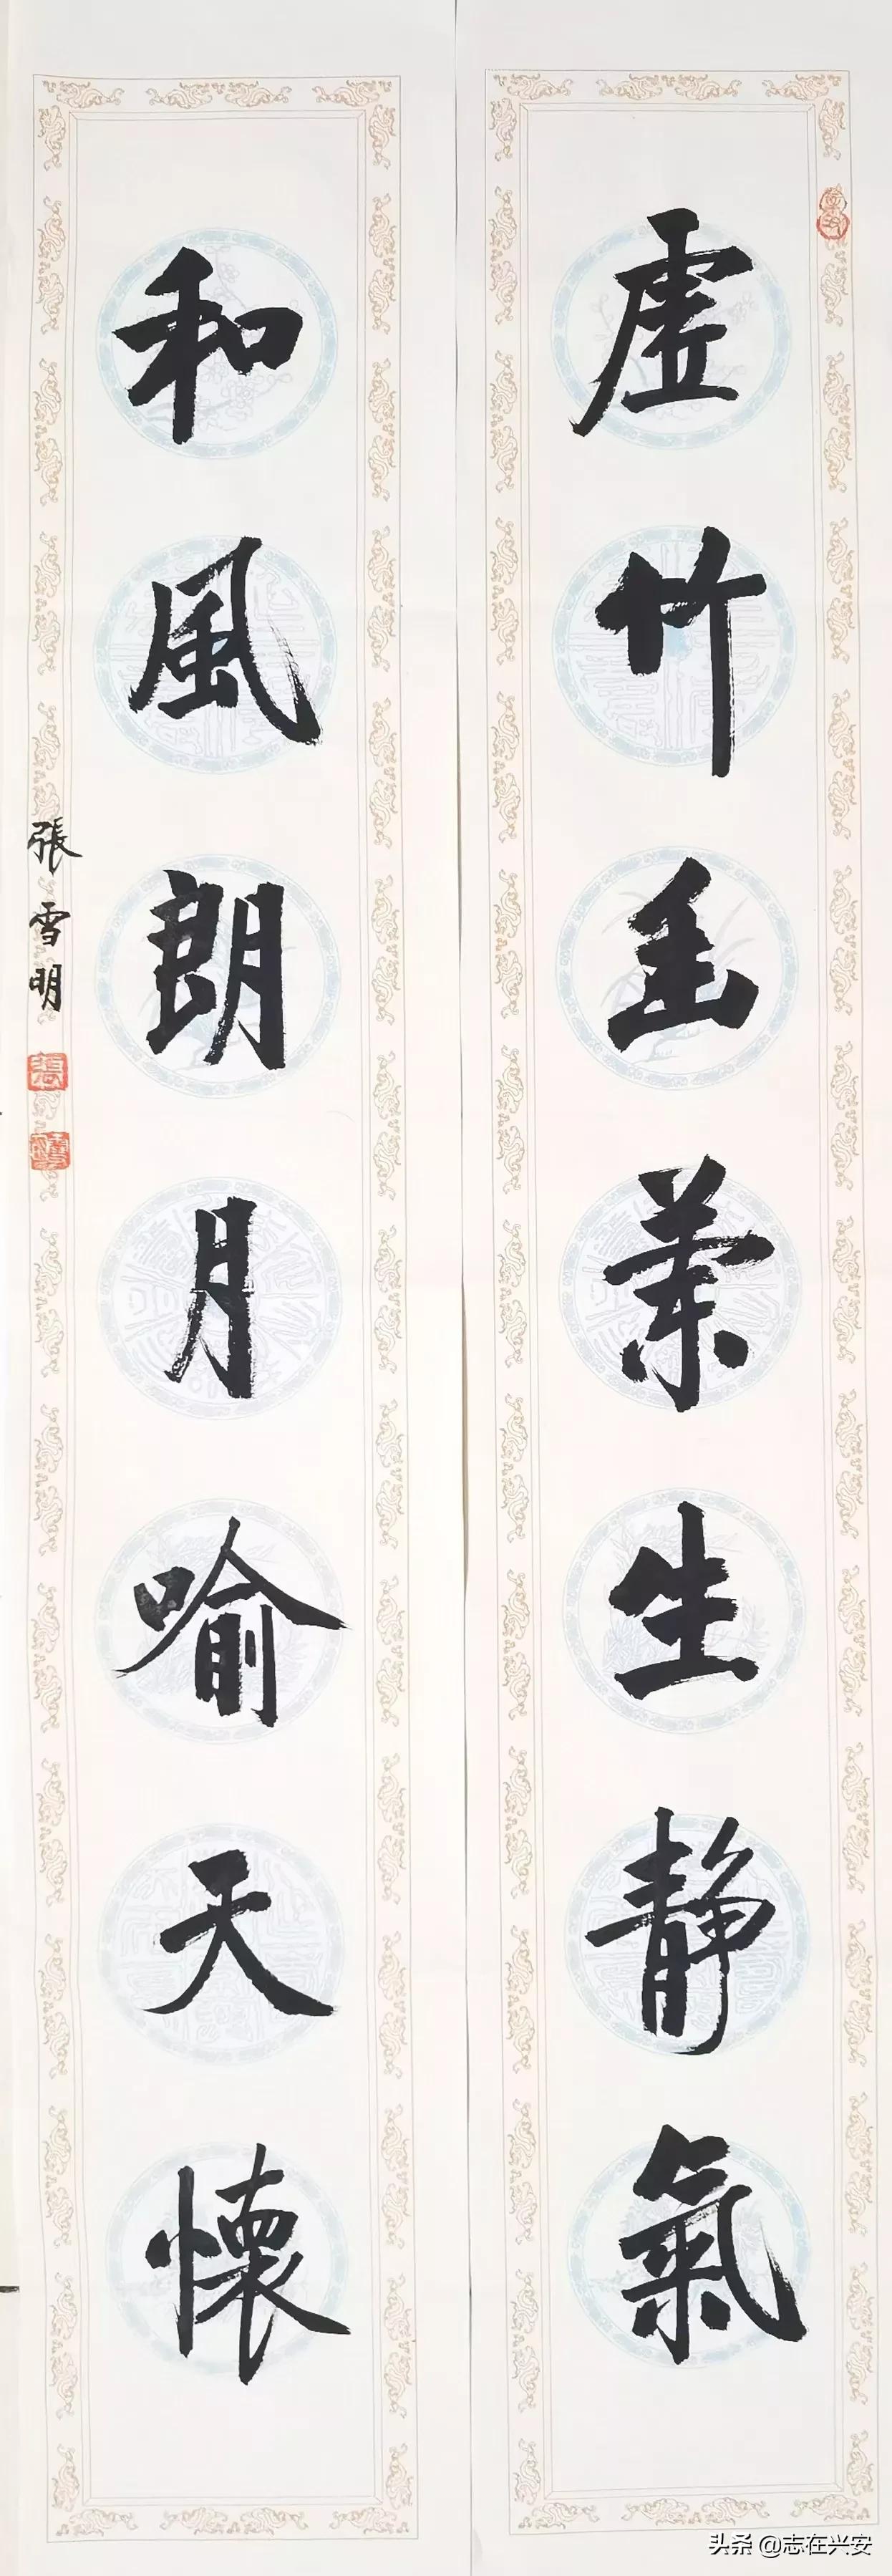 虛竹幽蘭生靜氣
和風朗月喻天懷
張雪明
头条 @志在兴安